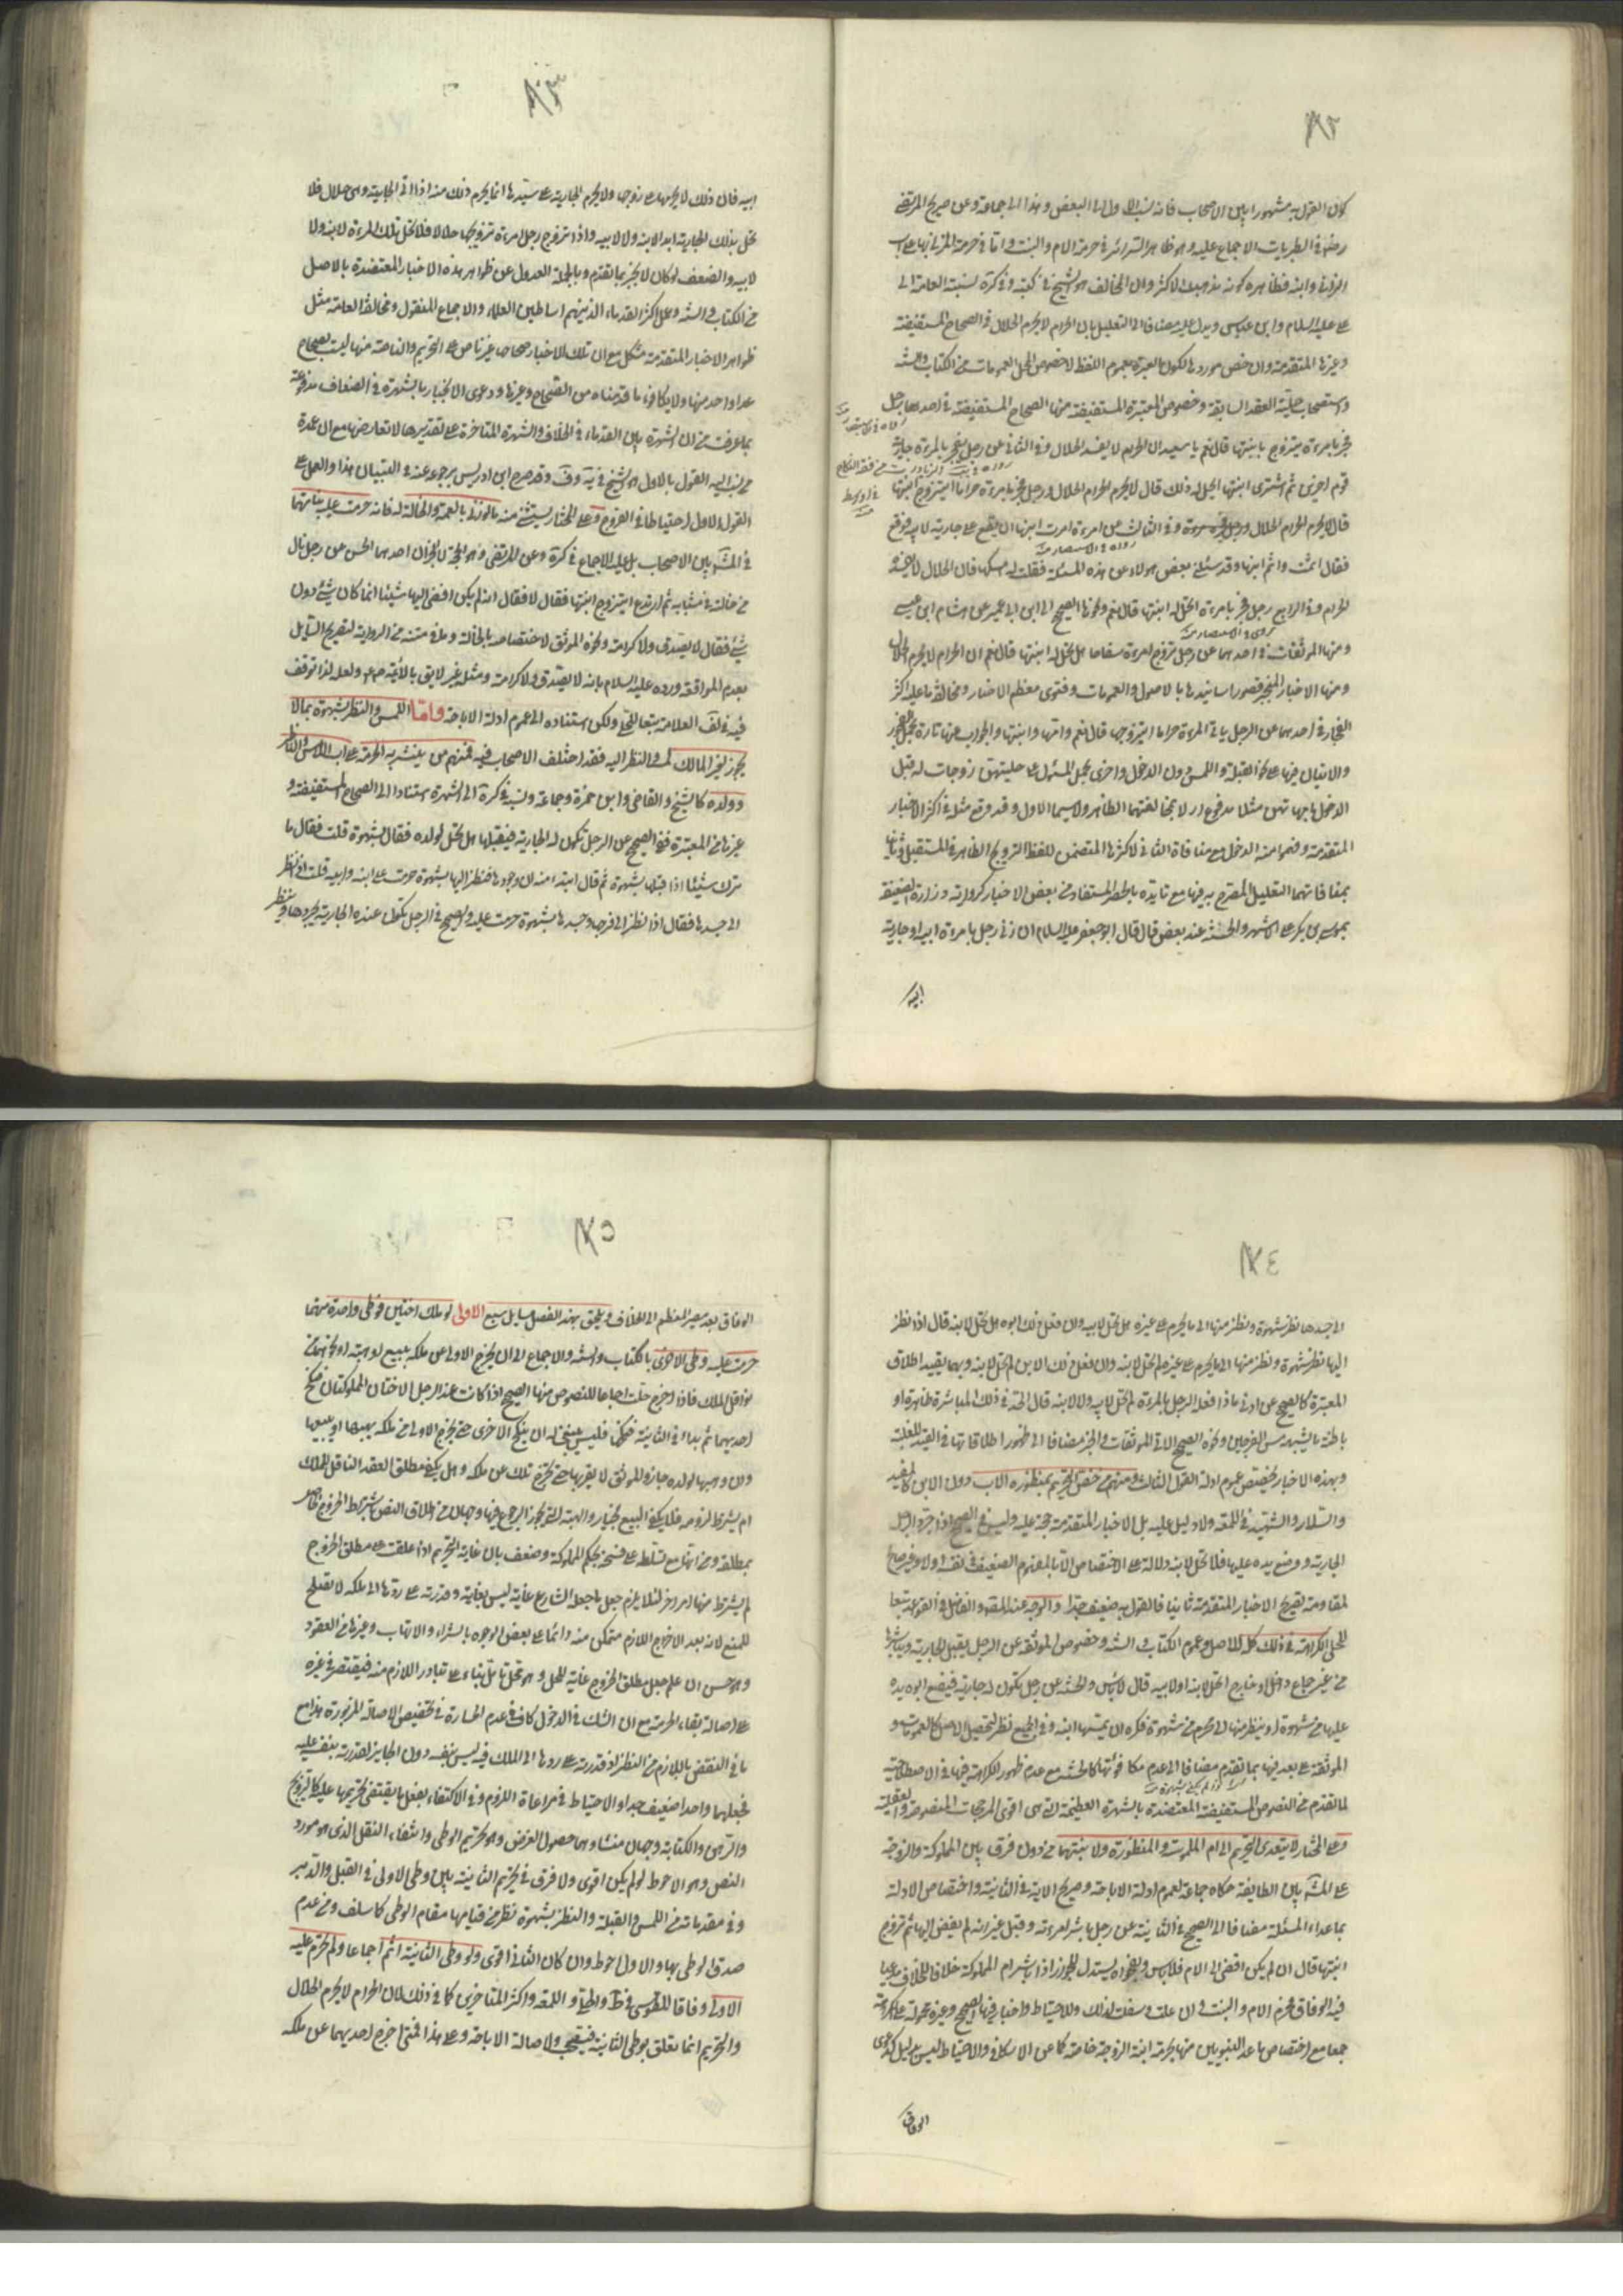 ١٨٢
كون القول به مشهورا بين الاصحاب فانه نسب الاول الى البعض وهذا الى جماعة وعن صريح المرتضى
رضه في الطبريات الاجماع عليه وهو ظاهر السرائر في حرمة الام والبنت واما في حرمة المزني بها على اب
الزاني وابنه فظاهره كونه مذهب الاكثر وان المخالف هو الشيخ في كتبه وفي كرة نسبته العامة الى
علي عليه السلام وابن عباس ويدل عليه مضافا الى التعليل بان الحرام لا يحرم الحلال في الصحاح المستفيضة
وغيرها المتقدمة وان خص موردها لكون العبرة بعموم اللفظ لا خصوص المحل العمومات من الكتاب والسنة
واستصحاب حلية العقد السابقة وخصوص المعتبرة المستفيضة منها الصحاح المستفيضة في احدها رجل
فجر بامرءة يتزوج بابنتها قال نعم يا سعيد ان الحرام لا يفسد الحلال وفي الثاني عن رجل يفجر بالمرءة جارية
قوم اخرين ثم اشترى ابنتها ايحل له ذلك قال لا يحرم الحرام الحلال ورجل فجر بامرءة حراما ايتزوج ابنتها
قال لا يحرم الحرام الحلال وفي الثالث عن امرءة امرت ابنها ان يقع على جارية لابيه فوقع
فقال اثمت واثم ابنها وقد سئلني بعض هولاء عن هذه المسئلة فقلت له امسكها فان الحلال لا يفسده
الحرام وفي الرابع رجل فجر بامرءة اتحل له ابنتها قال نعم ونحوها الصحيح الى ابن ابي عمير عن هشام
ومنها الموثقات في احدهما عن رجل تزوج امرءة سفاحا هل تحل له ابنتها قال نعم ان الحرام لا يحرم الحلال
ومنها الاخبار المنجبر قصور اسانيدها بالاصول والعمومات وفتوى معظم الاخيار ومخالفة ما عليه اكثر
الفجار في احدهما عن الرجل ياتي المرءة حراما ايتزوجها قال نعم وامها وابنتها والجواب عنها تارة بحمل الفجور
والاتيان فيها على نحو القبلة واللمس دون الدخول واخرى بحمل المسئول على حليتهن زوجات له قبل
المتقدمة وفهموا منه الدخول مع منافاة الثاني لاكثرها المتضمن للفظ التزويج الظاهر في المستقبل وثانيا
بمنافاتهما التعليل المصرح به فيها مع تايده بالحصر المستفاد من بعض الاخبار كرواية زرارة الضعيفة
بموسى بن بكر على الاشهر والحسنة عند بعض قال قال ابو جعفر عليه السلام ان زنى رجل بامرءة ابيه او جارية
ابيه
١٨٣
ابيه فان ذلك لا يحرمها على زوجها ولا يحرم الجارية على سيدها انما يحرم ذلك منه اذا اتى الجارية وهي حلال فلا
تحل بذلك الجارية ابدا لابنه ولا لابيه واذا تزوج رجل امرءة تزويجا حلالا فلا تحل تلك المرءة لابنه ولا
لابيه والضعف لو كان لانجبر بما تقدم وبالجملة العدول عن ظواهر هذه الاخبار المعتضدة بالاصل
من الكتاب والسنة وعمل اكثر القدماء الذين هم اساطين العلماء والاجماع المنقول ومخالفة العامة بمثل
ظواهر الاخبار المتقدمة مشكل مع ان تلك الاخبار صحاحها غير ناص على التحريم والناصة منها ليست بصحاح
عدا واحد منها ولا يكافؤ ما قدمناه من الصحاح وغيرها ودعوى الانجبار بالشهرة في الضعاف مدفوعة
بما عرفت من ان الشهرة بين القدماء في الخلاف والشهرة المتاخرة على تقديرها لا تعارضها مع ان عمدة
من نسب اليه القول بالاول هو الشيخ في يه وف وقد صرح ابن ادريس برجوعه عنه في التبيان هذا والعمل على
القول الاول احتياطا في الفروج وعلى المختار يستثنى منه ما لو زنا بالعمة والخالة له فانه حرمت عليه بناتهما
من خالته في شبابه ثم ارتدع ايتزوج ابنتها فقال لا فقال انه لم يكن افضى اليها شيئا انما كان شئ دون
شئ فقال لا يصدق ولا كرامة ونحوه الموثق لاختصاصه بالخالة وما في متنه من الرواية لتصريح السايل
بعدم المواقعة ورده عليه السلام بانه لا يصدق ولا كرامة ومثله غير لايق بالائمة ولعله لذا توقف
فيه في لف العلامة تبعا للحلي ولكن استناده الى عموم ادلة الاباحة واما اللمس والنظر بشهوة بما لا
يجوز لغير المالك لمسه والنظر اليه فقد اختلف الاصحاب فيه فمنهم من ينشر به الحرمة على اب اللامس والناظر
وولده كالشيخ والقاضي وابن حمزة وجماعة ونسبه في كرة الى الشهرة استنادا الى الصحاح المستفيضة و
غيرها من المعتبرة ففي الصحيح عن الرجل تكون له الجارية فيقبلها هل تحل لولده فقال بشهوة قلت نعم فقال ما
ترك شيئا اذا قبلها بشهوة ثم قال ابتداء منه ان جردها فنظر اليها بشهوة حرمت على ابنه وابيه قلت اذا نظر
الى جسدها فقال اذا نظر الى فرجها وجسدها بشهوة حرمت عليه والصحيح في الرجل تكون عنده الجارية يجردها وينظر
١٨٤
الى جسدها نظر شهوة وينظر منها الى ما يحرم على غيره هل تحل لابيه وان فعل ذلك ابوه هل تحل لابنه قال اذا نظر
اليها نظر شهوة ونظر منها الى ما يحرم على غيره لم تحل لابنه وان فعل ذلك الابن لم تحل لابيه وبهما يقيد اطلاق
المعتبرة كالصحيح عن ادنى ما اذا فعله الرجل بالمرءة لم تحل لابيه ولا لابنه قال الحد في ذلك المباشرة ظاهرة او
باطنة ما يشبه مس الفرجين ونحوه الصحيح الاتي الموثقات والخبر مضافا الى ظهور اطلاقاتها في القيد للغلبة
وبهذه الاخبار يخصص عموم ادلة القول الثالث ومنهم من خص التحريم بمنظورة الاب دون الابن كالمفيد
والسلار والشهيد في اللمعة ولا دليل عليه بل الاخبار المتقدمة حجة عليه وليس في الصحيح اذا جرد الرجل
الجارية ووضع يده عليها فلا تحل لابنه دلالة على الاختصاص الا بالمفهوم الضعيف في نفسه اولا وغير صالح
لمقاومة تصريح الاخبار المتقدمة ثانيا فالقول به ضعيف جدا والوجه عند المصنف والفاضل في القواعد تبعا
للحلي الكراهة في ذلك كله للاصل وعموم الكتاب والسنة وخصوص الموثقة عن الرجل يقبل الجارية ويباشرها
من غير جماع داخل او خارج اتحل لابنه او لابيه قال لا باس والحسنة عن رجل تكون له جارية فيضع ابوه يده
عليها من شهوة او ينظر منها الى محرم من شهوة فكره ان يمسها ابنه وفي الجميع نظر لتخصيص الاصل كالعمومات و
الموثقة على بعد فيها بما تقدم مضافا الى عدم مكافوئتها كالحسنة مع عدم ظهور الكراهة فيها في الاصطلاحية
لما تقدم من النصوص المستفيضة المعتضدة بالشهرة العظيمة التي هي اقوى المرجحات المنصوصة والعقلية
وعلى المختار لا يتعدى التحريم الى ام الملموسة والمنظورة ولا بنتيهما من دون فرق بين المملوكة والزوجة
على المشهور بين الطايفة حكاه جماعة لعموم ادلة الاباحة وصريح الاية في الثانية واختصاص الادلة
بما عداء المسئلة مضافا الى الصحيح في الثانية عن رجل باشر امرءته وقبل غير انه لم يفض اليها ثم تزوج
ابنتها قال ان لم يكن افضى الى الام فلا باس وبفحواه يستدل للجواز اذا باشر ام المملوكة خلافا للخلاف مدعيا
فيه الوفاق فحرم الام والبنت وان علت وسفلت لذلك وللاحتياط واخبار فيها الصحيح وغيره محمولة على الكراهة
جمعا مع اختصاص ما عدا النبويين منها بحرمة ابنة الزوجة خاصة كما عن الاسكافي والاحتياط ليس بدليل كدعوى
الوفاق
١٨٥
الوفاق بعد مصير المعظم الى الخلاف ويلحق بهذا الفصل مسايل سبع الاولى لو ملك اختين فوطى واحدة منهما
حرمت عليه وطى الاخرى بالكتاب والسنة والاجماع الى ان يخرج الاولى عن ملكه ببيع او هبة او نحوهما من
نواقل الملك فاذا اخرج حلت اجماعا للنصوص منها الصحيح اذا كانت عند الرجل الاختان المملوكتان فنكح
احديهما ثم بدا له في الثانية فنكحها فليس ينبغي له ان ينكح الاخرى حتى يخرج الاولى من ملكه يهبها او يبيعها
وان وهبها لولده جاز والموثق لا يقربها حتى تخرج تلك عن ملكه وهل يكفي مطلق العقد الناقل للملك
ام يشترط لزومه فلا يكفي البيع بخيار والهبة التي يجوز الرجوع فيها وجهان من اطلاق النص باشتراط الخروج الحاصل
بمطلقه ومن انها مع تسلطه على فسخه بحكم المملوكة وضعف بان غاية التحريم اذا علقت على مطلق الخروج
لم يشترط منها امر اخر لئلا يلزم جعل ما جعله الشارع غاية ليس بغاية وقدرته على ردها الى ملكه لا تصلح
للمنع لانه بعد الاخراج اللازم متمكن منه دائما على بعض الوجوه بالشراء والاتهاب وغيرها من العقود
وهو حسن ان علم جعل مطلق الخروج غاية للحل وهو محل تامل بناء على تبادر اللازم منه فيقتصر في غيره
على اصالة بقاء الحرمة مع ان الشك في الدخول كاف في عدم الجسارة في تخصيص الاصالة المزبورة هذا مع
ما في النقض باللازم من النظر اذ قدرته على ردها الى الملك فيه ليس بنفسه دون الجايز لقدرته بنفسه عليه
فجعلهما واحدا ضعيف جدا والاحتياط في مراعاة اللزوم وفي الاكتفاء بفعل ما يقتضي تحريمها عليه كالتزويج
والرهن والكتابة وجهان منشاوهما حصول الغرض وهو تحريم الوطى وانتفاء النقل الذي هو مورد
النص وهو الاحوط لو لم يكن اقوى ولا فرق في تحريم الثانية بين وطى الاولى في القبل والدبر
وفي مقدماته من اللمس والقبلة والنظر بشهوة نظر من قيامها مقام الوطى كما سلف ومن عدم
صدق الوطى بها والاول احوط وان كان الثاني اقوى ولو وطى الثانية اثم اجماعا ولم تحرم عليه
الاولى وفاقا للطوسي في ط والحلي واللمعة واكثر المتاخرين كما في ذلك لان الحرام لا يحرم الحلال
والتحريم انما تعلق بوطى الثانية فيستصحب ولاصالة الاباحة وعلى هذا فمتى اخرج احديهما عن ملكه